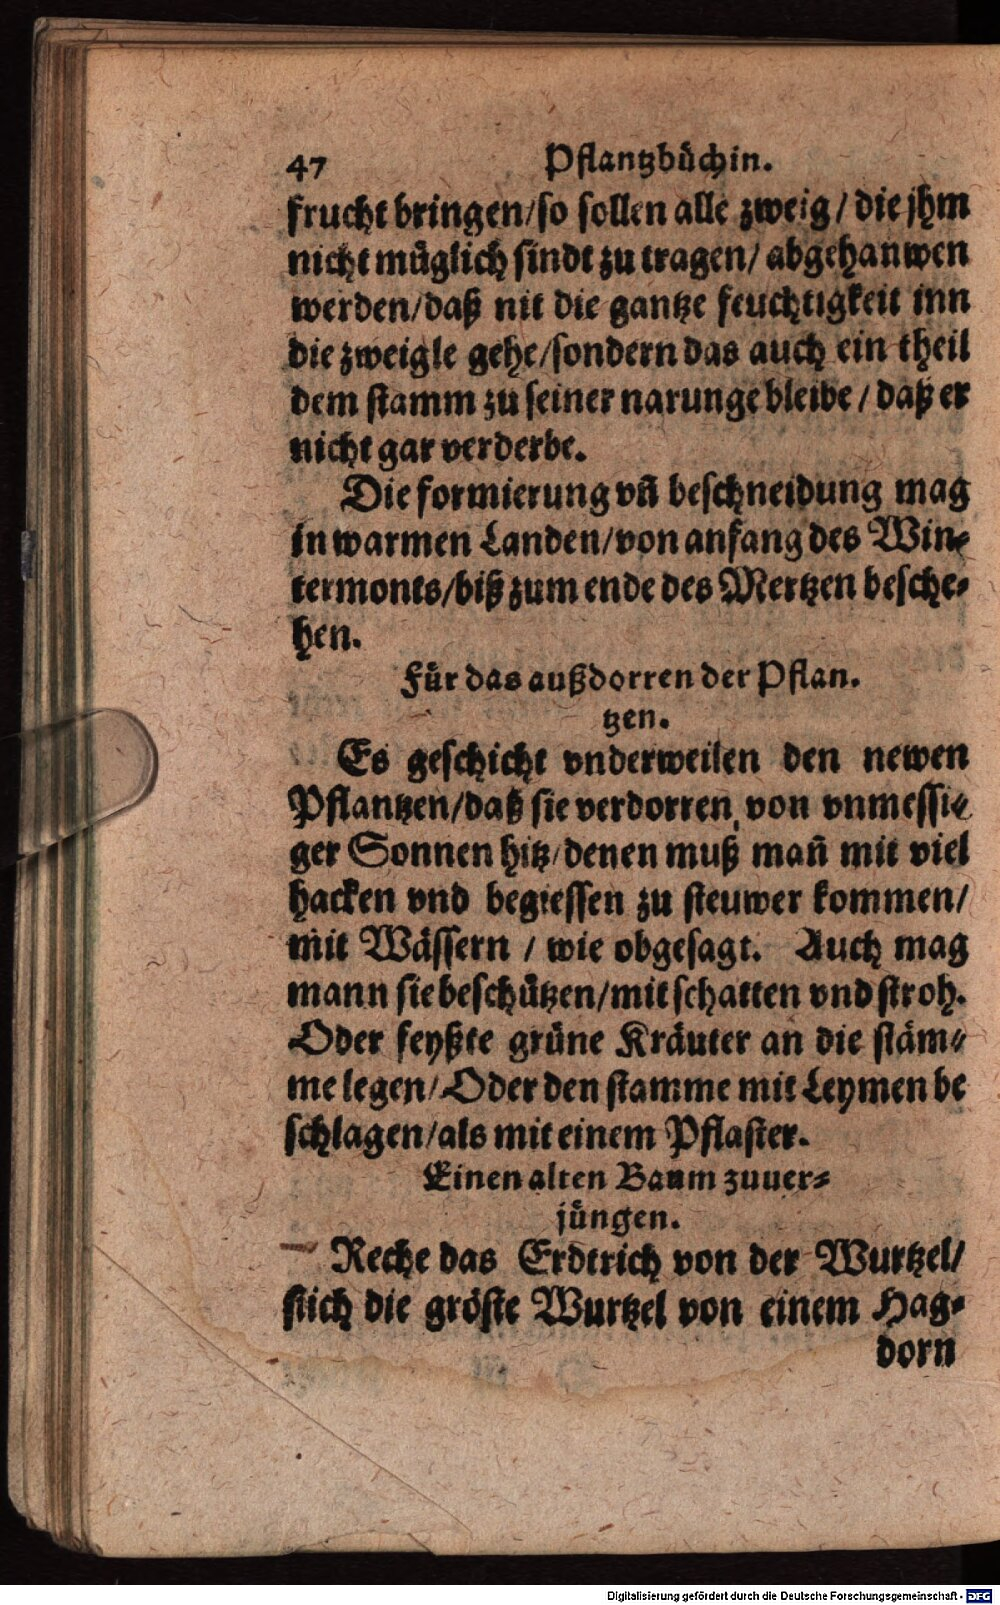 47 Pflantzbüchin.
frucht bringen/so sollen alle zweig/ die jhm
nicht müglich sindt zu tragen/ abgehanwen
werden/daß nit die gantze feuchtigkeit inn
die zweigle gehe/sondern das auch ein theil
dem stamm zu seiner narunge bleibe/ daß er
nicht gar verderbe.
Die formierung vñ beschneidung mag
in warmen Landen/von anfang des Win-
termonts/biß zum ende des Mertzen besche-
hen.
Für das außdorren der Pflan.
tzen.
Es geschicht vnderweilen den newen
Pflantzen/daß sie verdorren, von vnmessi-
ger Sonnen hitz/denen muß mañ mit viel
hacken vnd begiessen zu steuwer kommen/
mit Wässern / wie obgesagt. Auch mag
mann sie beschützen/mit schatten vnd stroh.
Oder feyßte grüne Kräuter an die stäm-
me legen/Oder den stamme mit Leymen be
schlagen/als mit einem Pflaster.
Einen alten Baum zuuer-
jüngen.
Reche das Erdtrich von der Wurtzel/
stich die gröste Wurtzel von einem Hag-
dorn
Digitalisierung gefördert durch die Deutsche Forschungsgemeinschaft - DFG